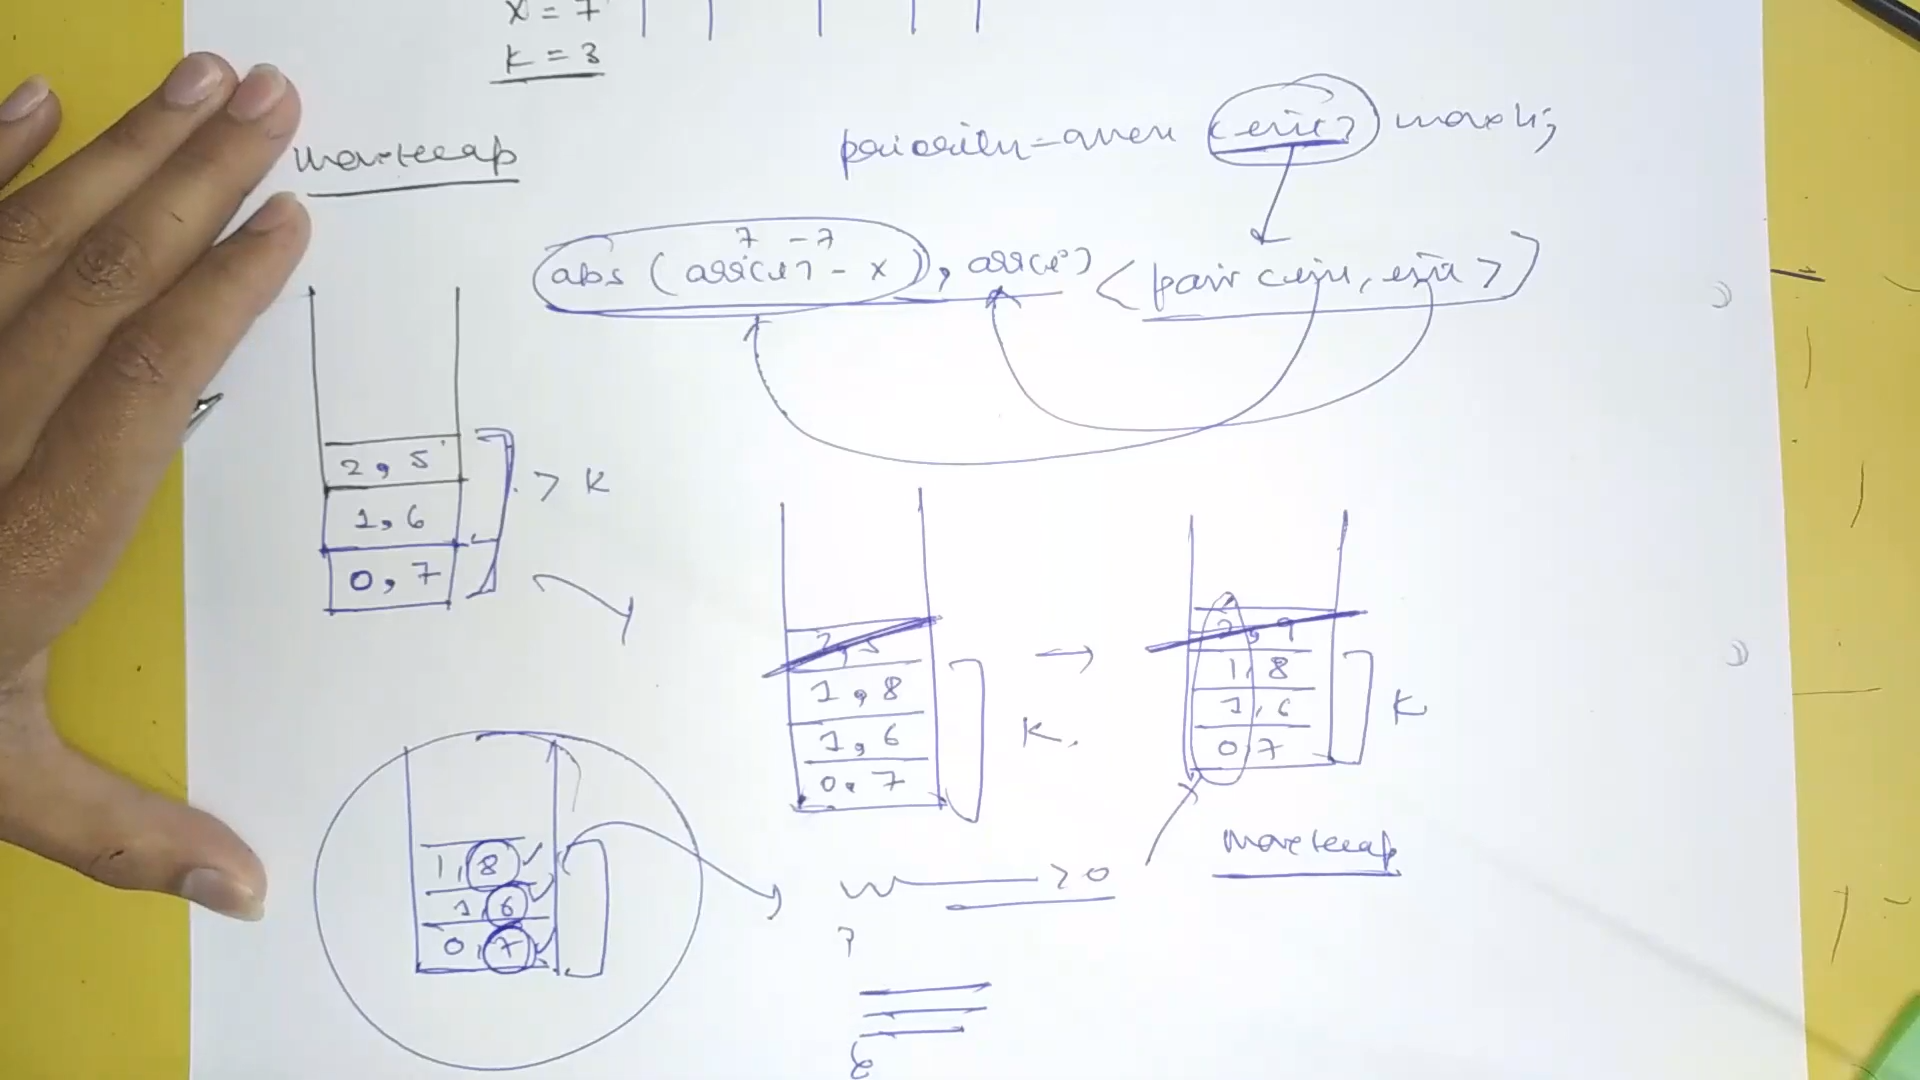 x = 7
k = 3
maxheap
priority-queue <int> maxh;
7 - 7
abs (arr[i] - x), arr[i] < pair <int, int> >
2, 5
1, 6
0, 7
> k
2, 5
1, 8
1, 6
0, 7
k.
2, 9
1, 8
1, 6
0, 7
k
maxheap
1, 8
1, 6
0, 7
> 0